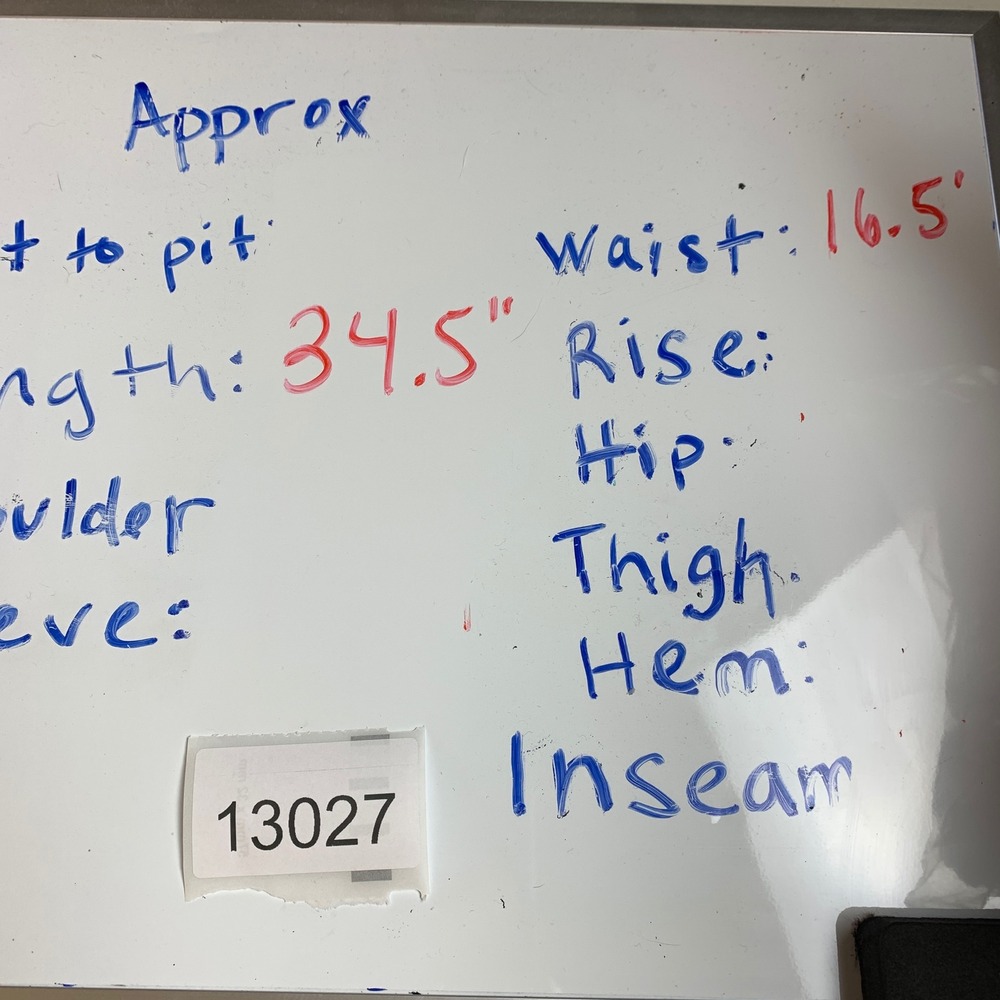 Approx
t to pit:
ngth: 34.5"
oulder
eve:
Waist: 16.5'
Rise:
Hip:
Thigh:
Hem:
Inseam
13027